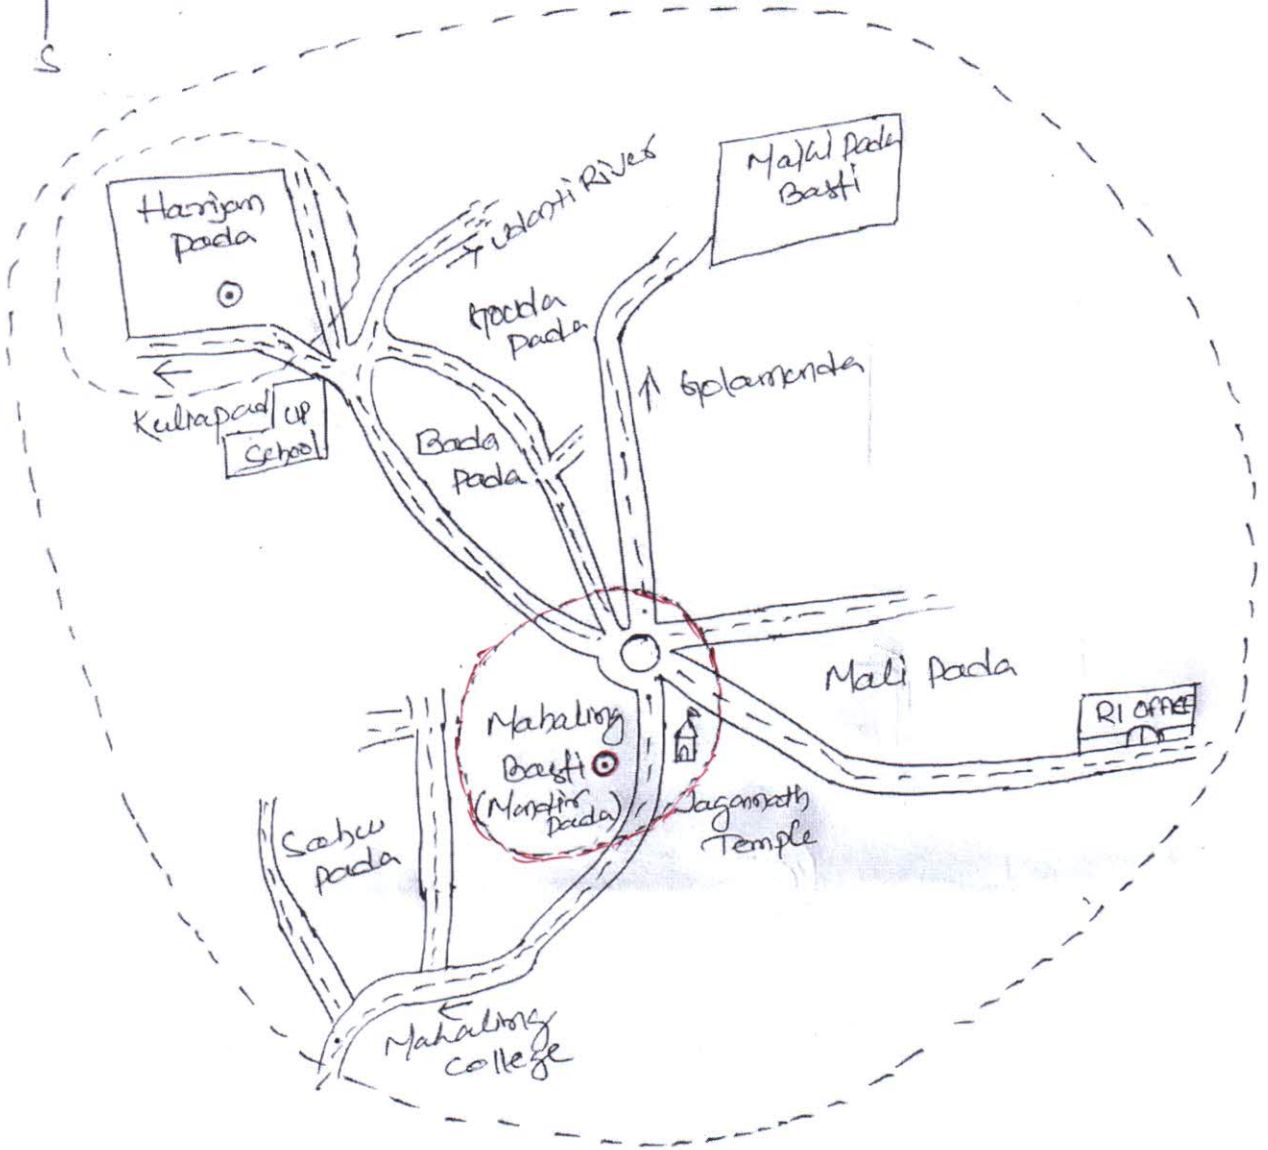 S
Harijan
Pada
Udanti River
Majhi Pada
Basti
Gouda
Pada
Golamunda
Kuhrapadi
UP
School
Bada
Pada
Mali Pada
RI OFFICE
Mahaling
Basti
(Mandir
Pada)
Jagannath
Temple
Sahu
Pada
Mahaling
College